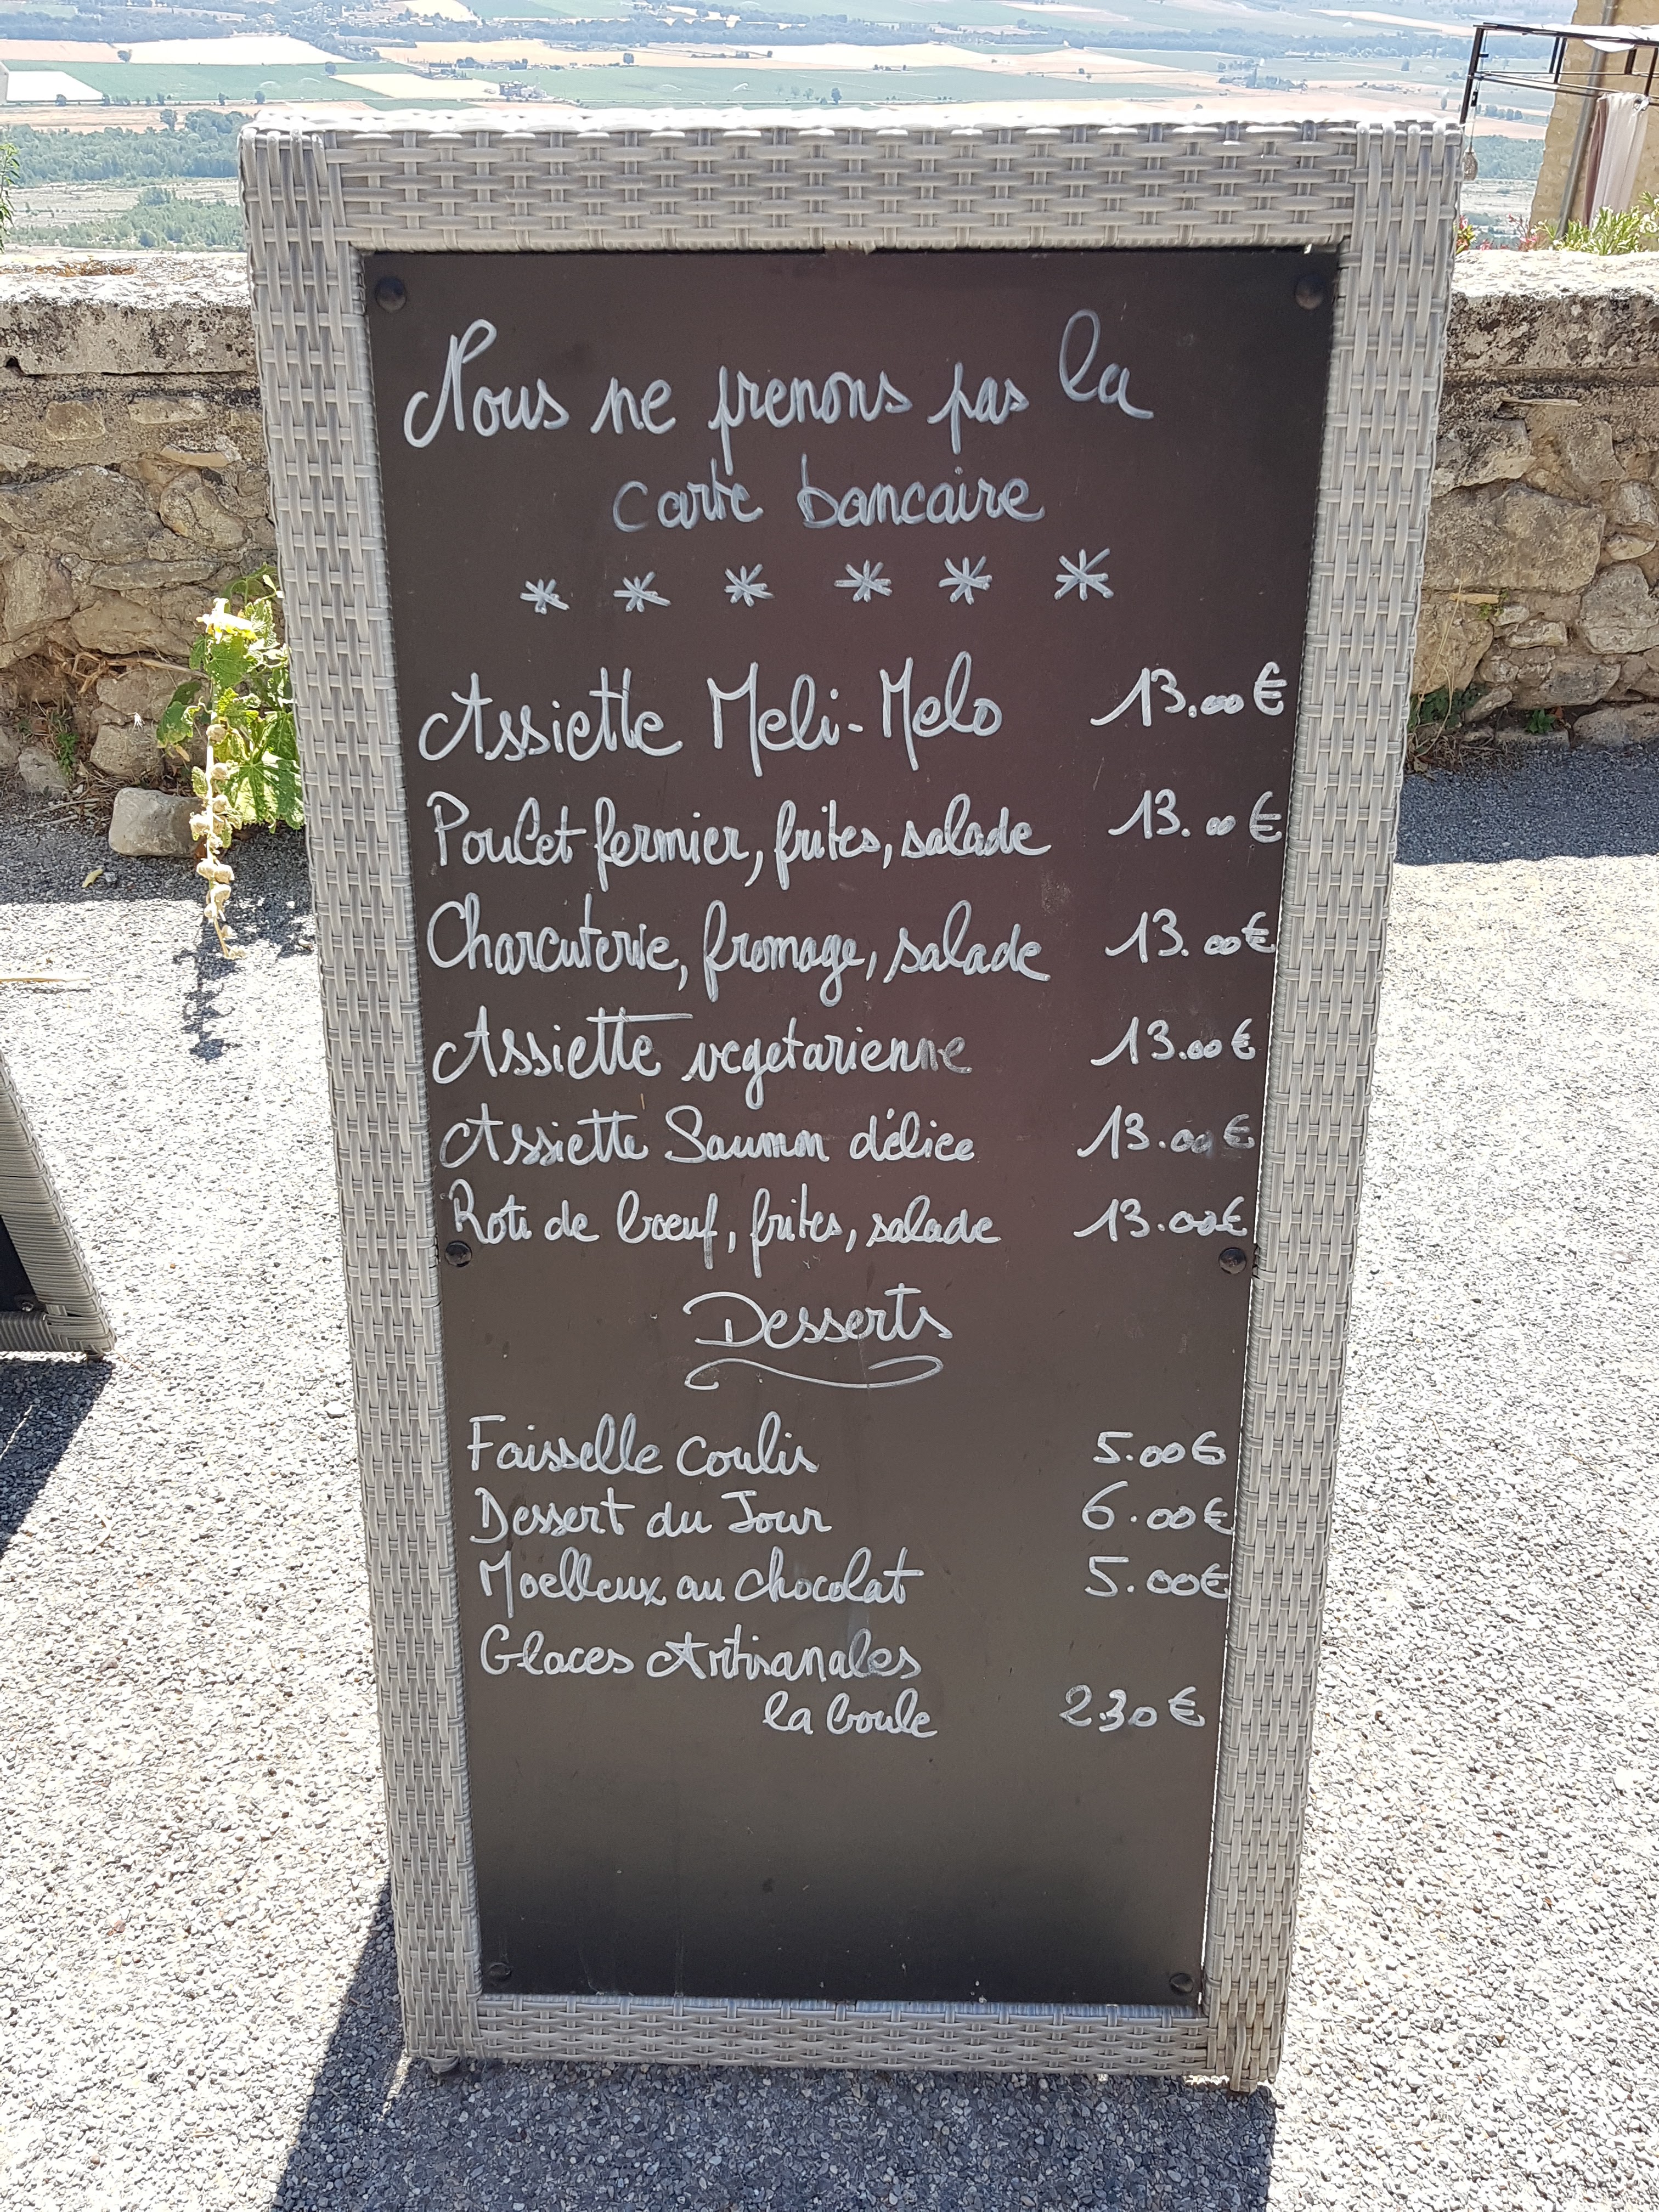 Nous ne prenons pas la
carte bancaire
* * * * * *
Assiette Meli-Melo 13.00€
Poulet fermier, frites, salade 13.00€
Charcuterie, fromage, salade 13.00€
Assiette vegetarienne 13.00€
Assiette Saumon délice 13.00€
Roti de bœuf, frites, salade 13.00€
Desserts
Faisselle coulis 5.00€
Dessert du Jour 6.00€
Moelleux au chocolat 5.00€
Glaces Artisanales
la boule 2.30€